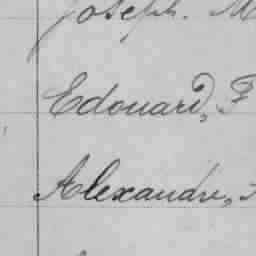 Joseph. M
Edouard, F
Alexandre,